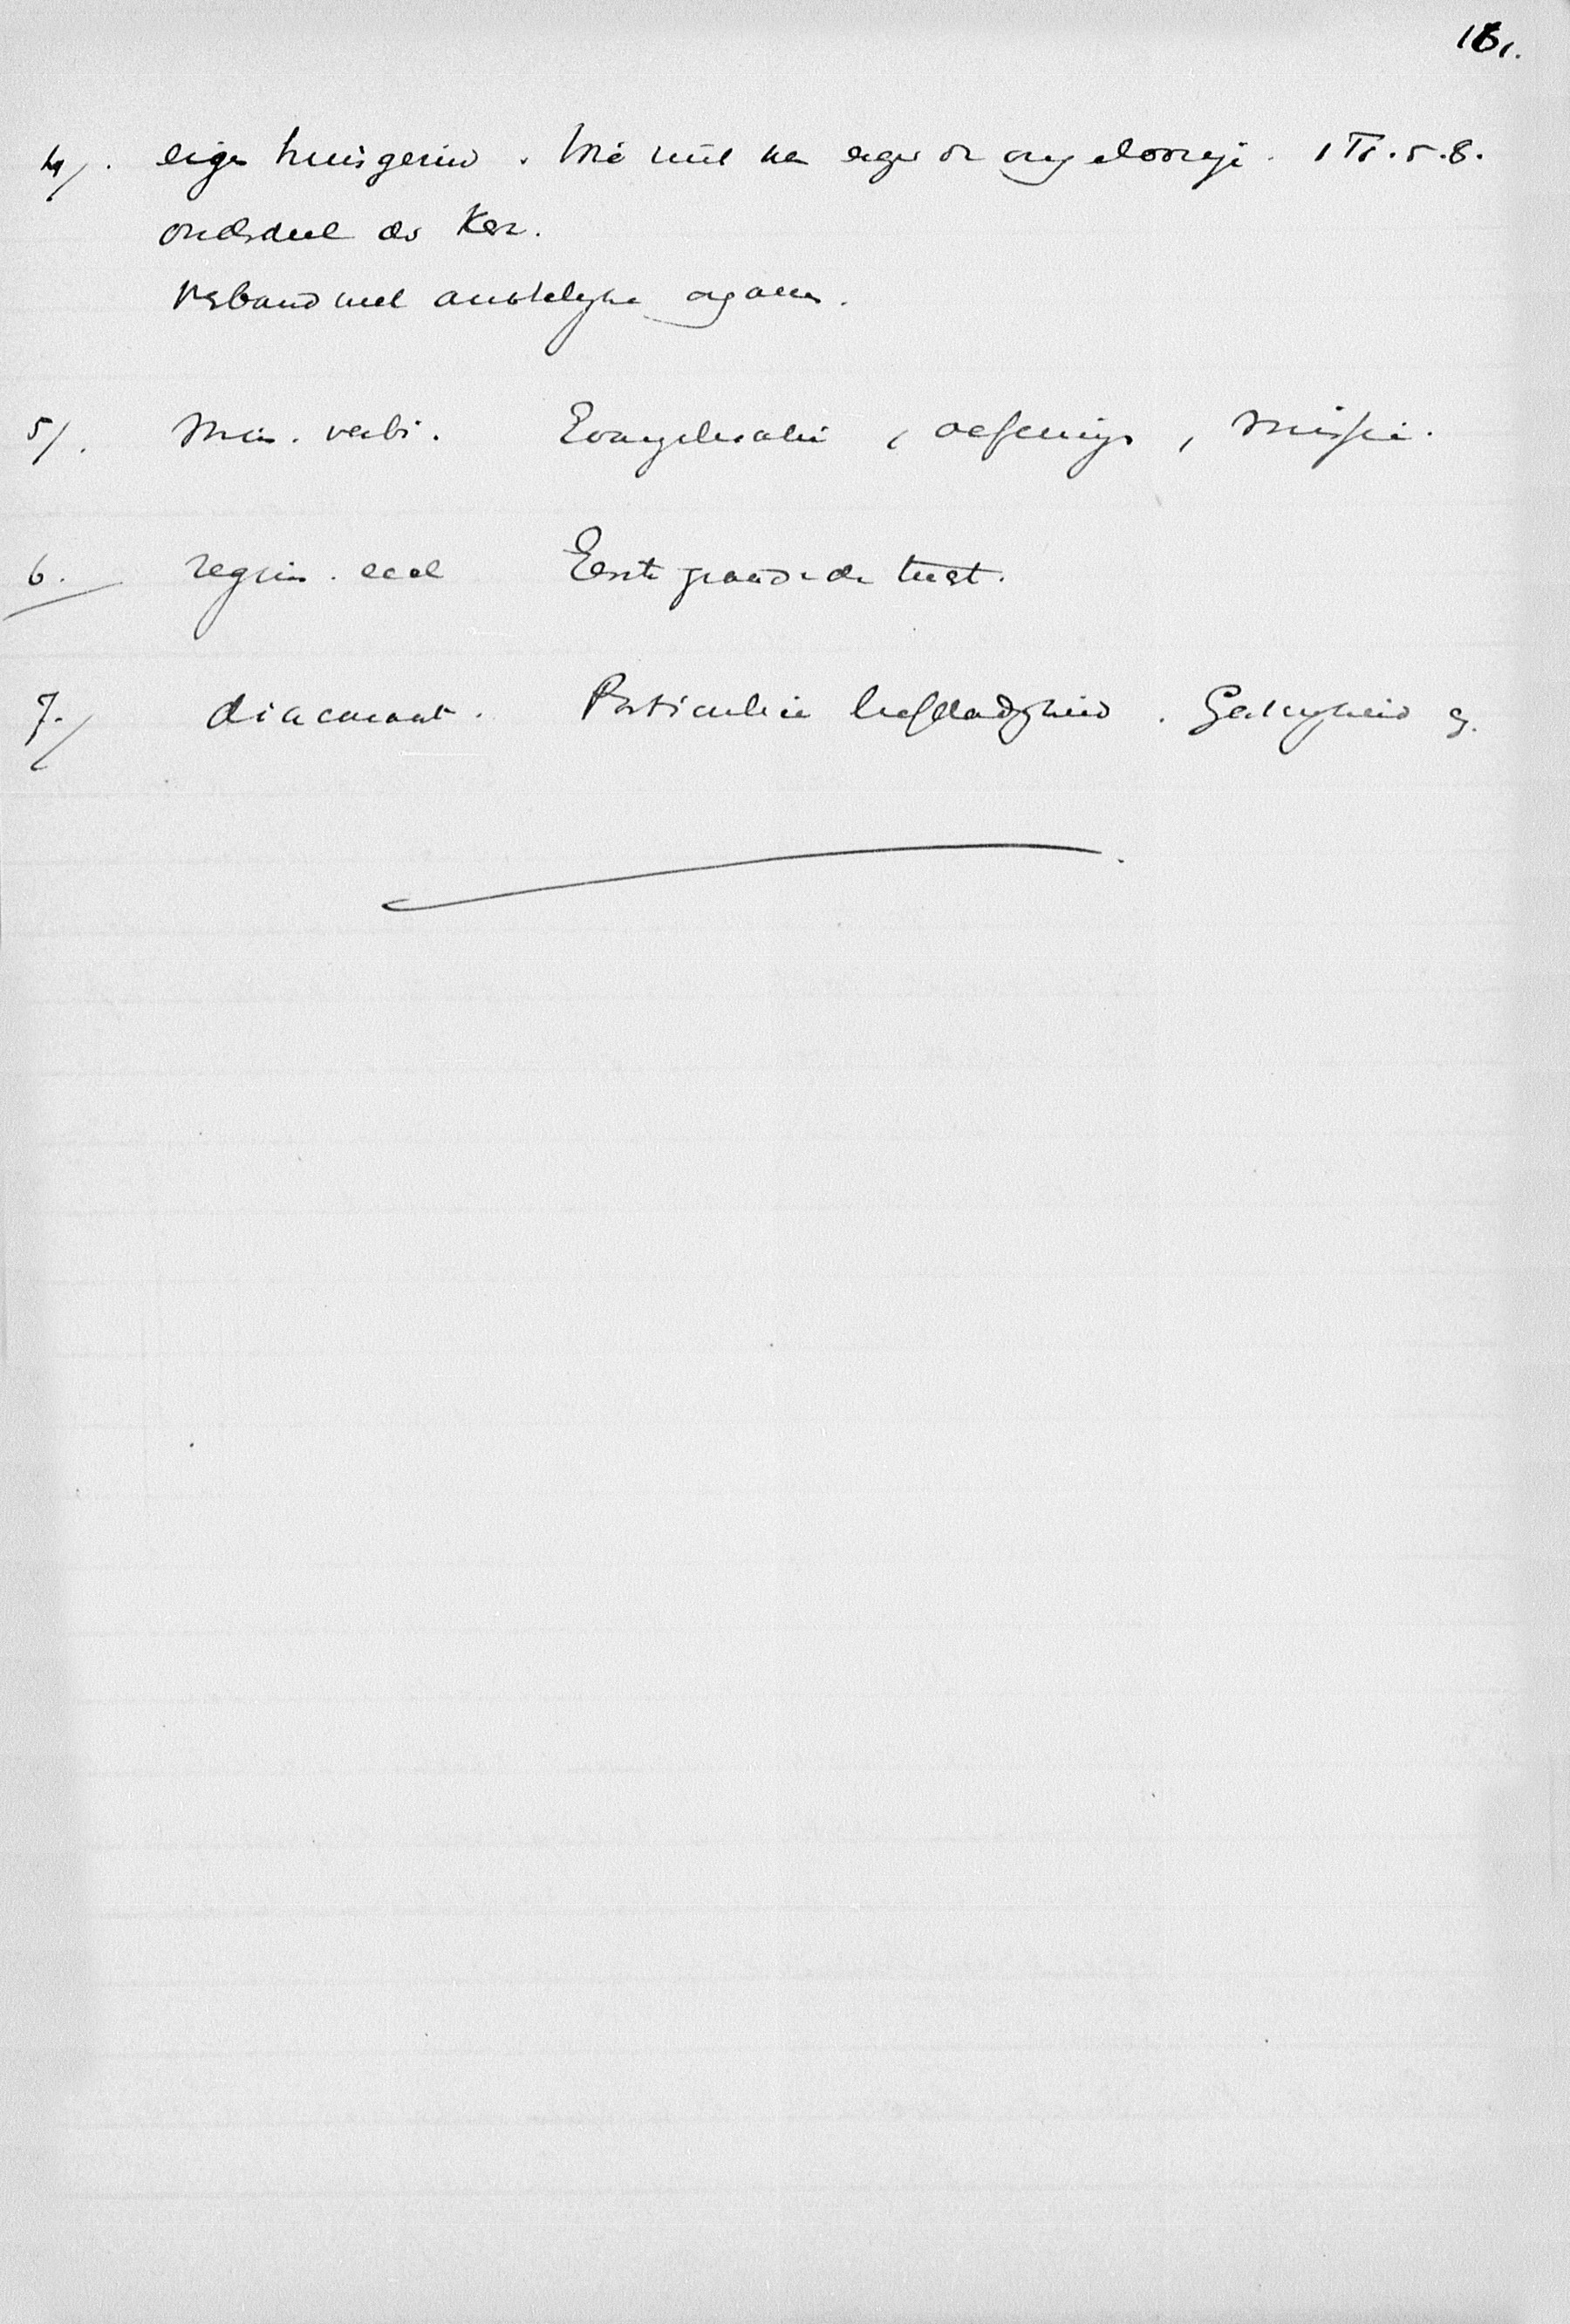 161.
4/. eigen huisgezin. Wie niet ... eigen ... ongeloovige. 1 Ti. 5.8.
onderdeel der Kerk.
Verband met ambtelijke organen.
5/. Min. verbi. Evangelisatie, oefeningen, Missie.
6. regim. eccl Eerste graad v. de tucht.
7./ diaconaat. Particuliere liefdadigheid.